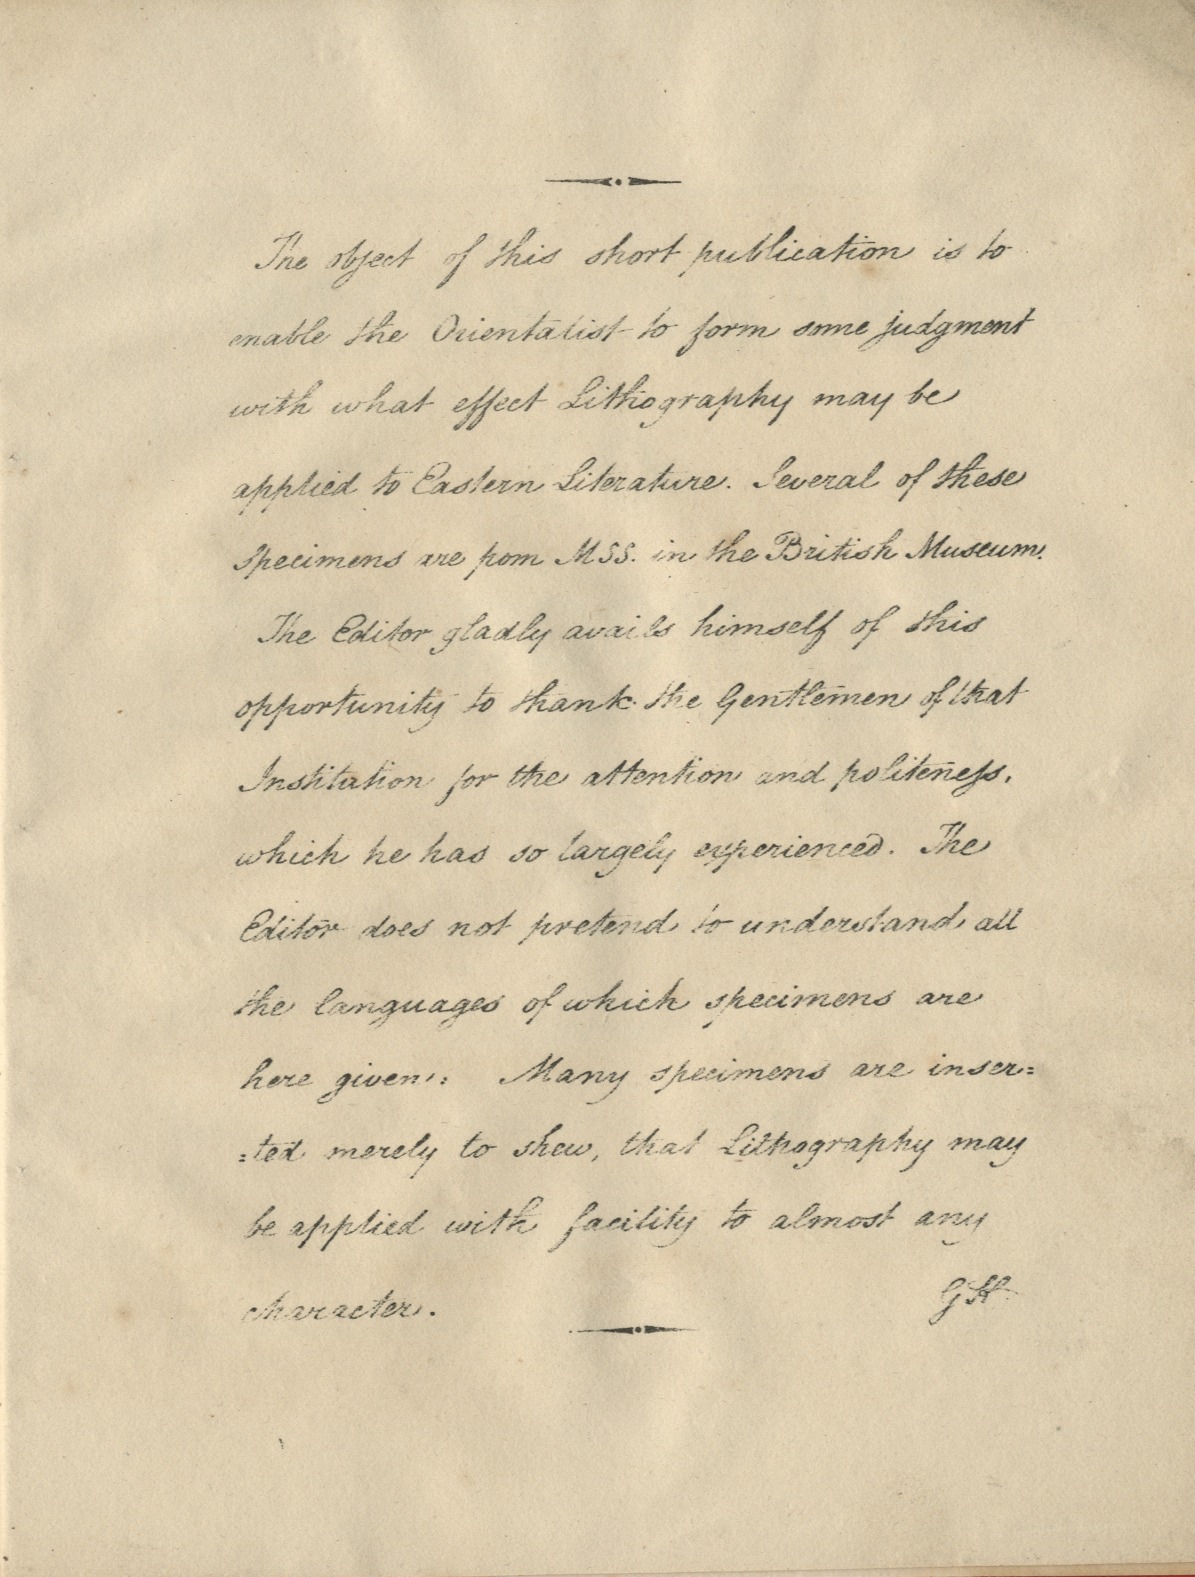 The object of this short publication is to
enable the Orientalist to form some judgment
with what effect Lithography may be
applied to Eastern Literature. Several of these
specimens are from MSS. in the British Museum.
The Editor gladly avails himself of this
opportunity to thank the Gentlemen of that
Institution for the attention and politeneſs,
which he has so largely experienced. The
Editor does not pretend to understand all
the languages of which specimens are
here given: Many specimens are inser=
=ted merely to shew, that Lithography may
be applied with facility to almost any
character.
GH